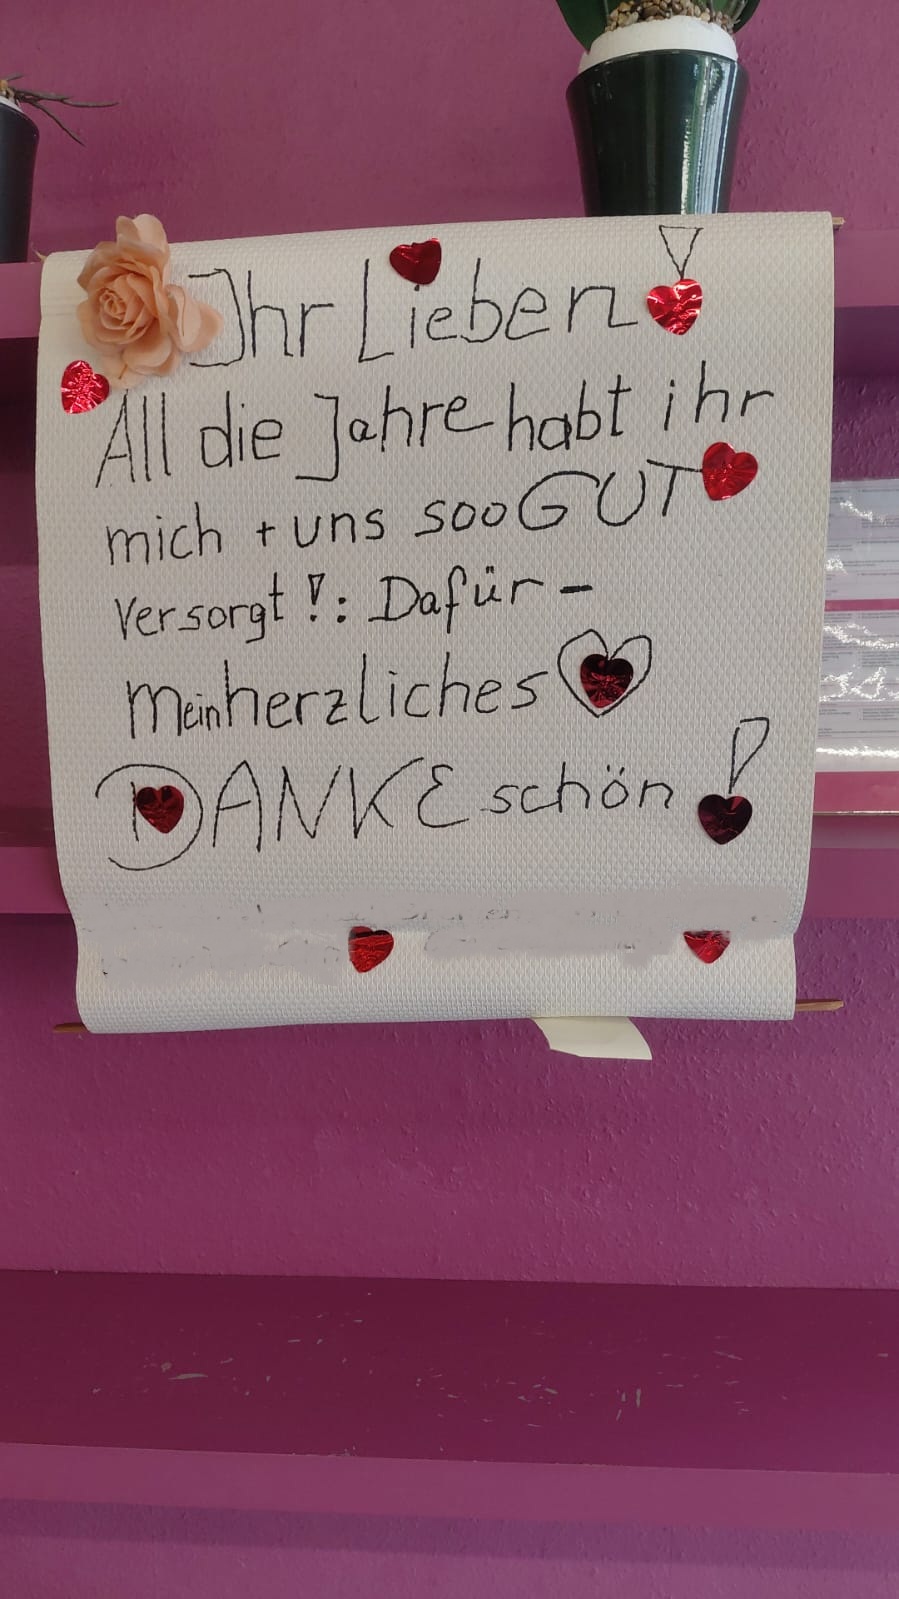 Ihr Lieben!
All die Jahre habt ihr
mich + uns soo GUT
versorgt!: Dafür -
Mein herzliches
DANKE schön!